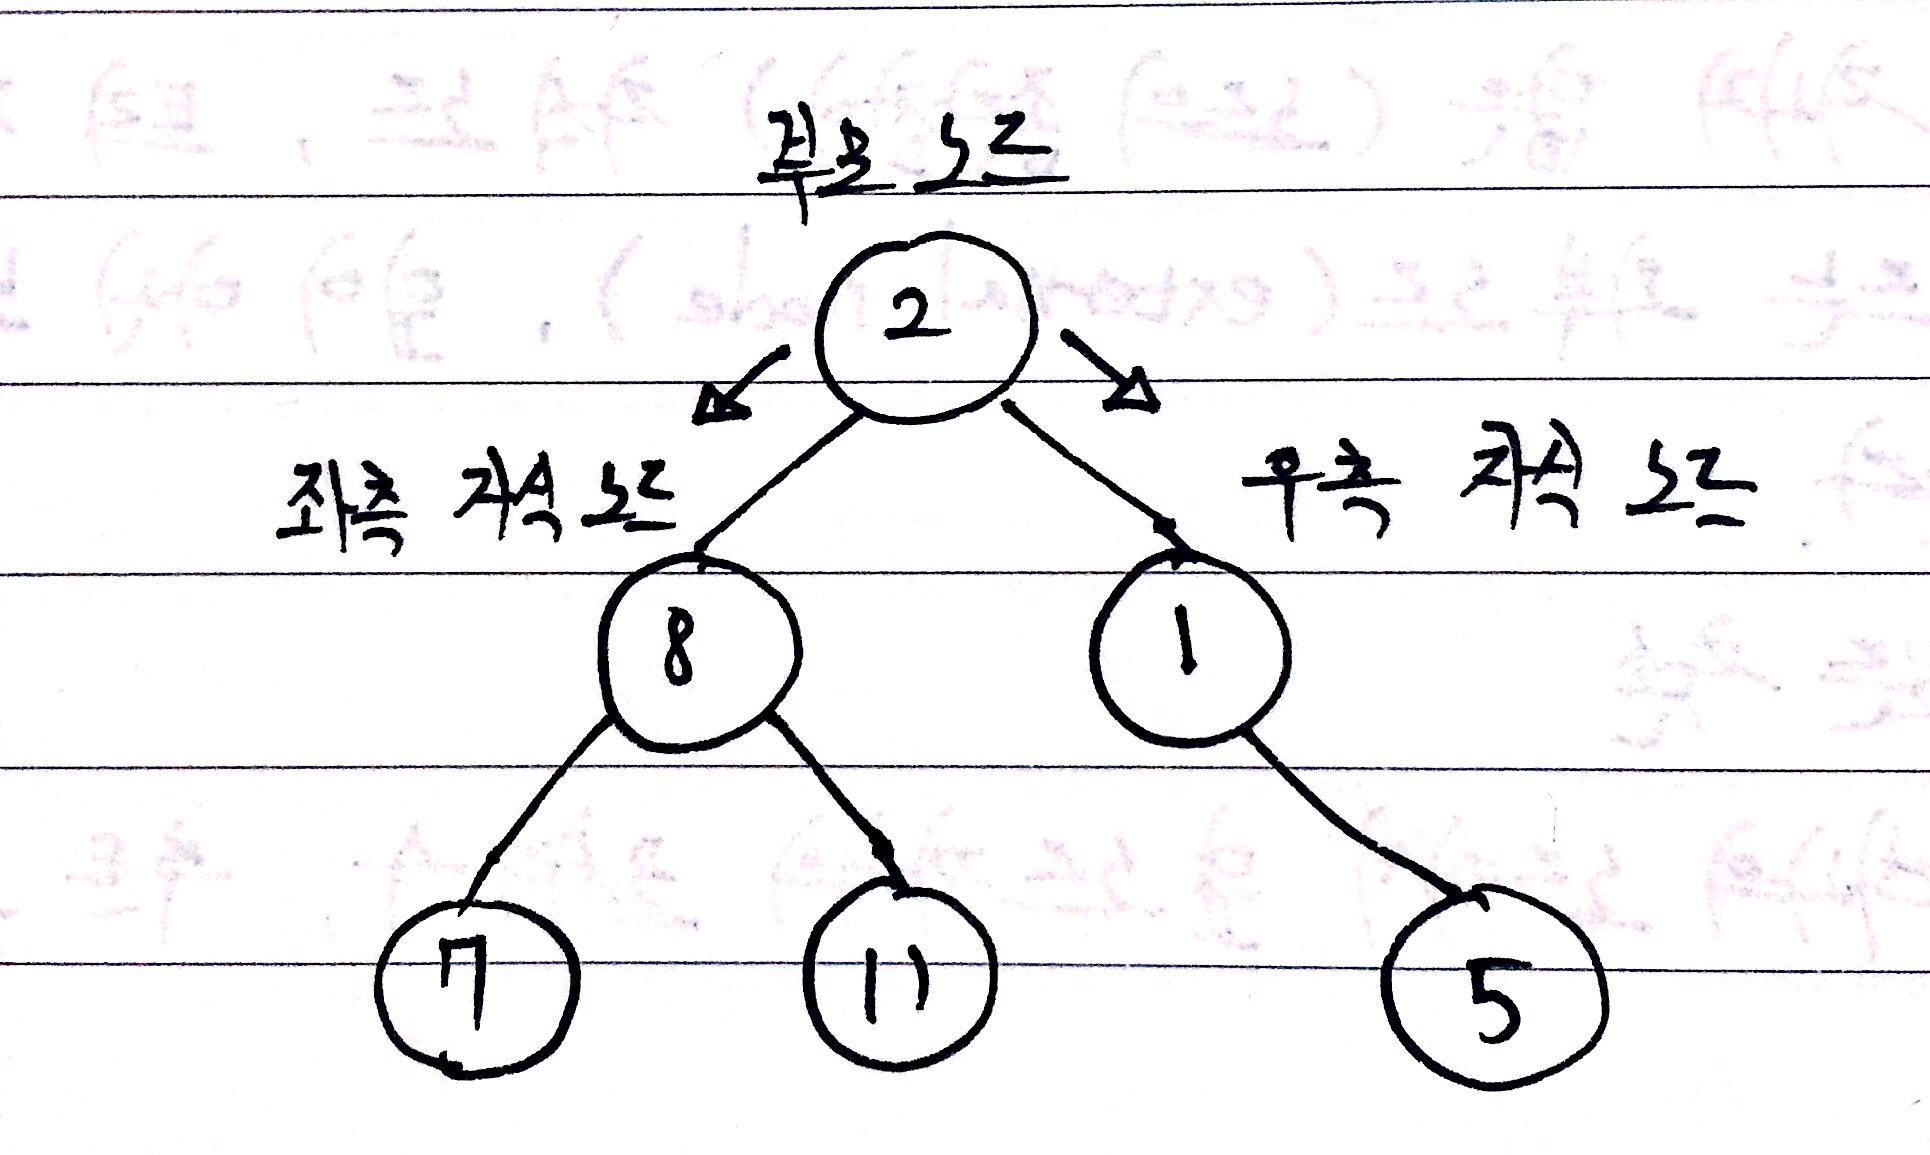 부모 노드
2
좌측 자식 노드
우측 자식 노드
8
1
7
11
5